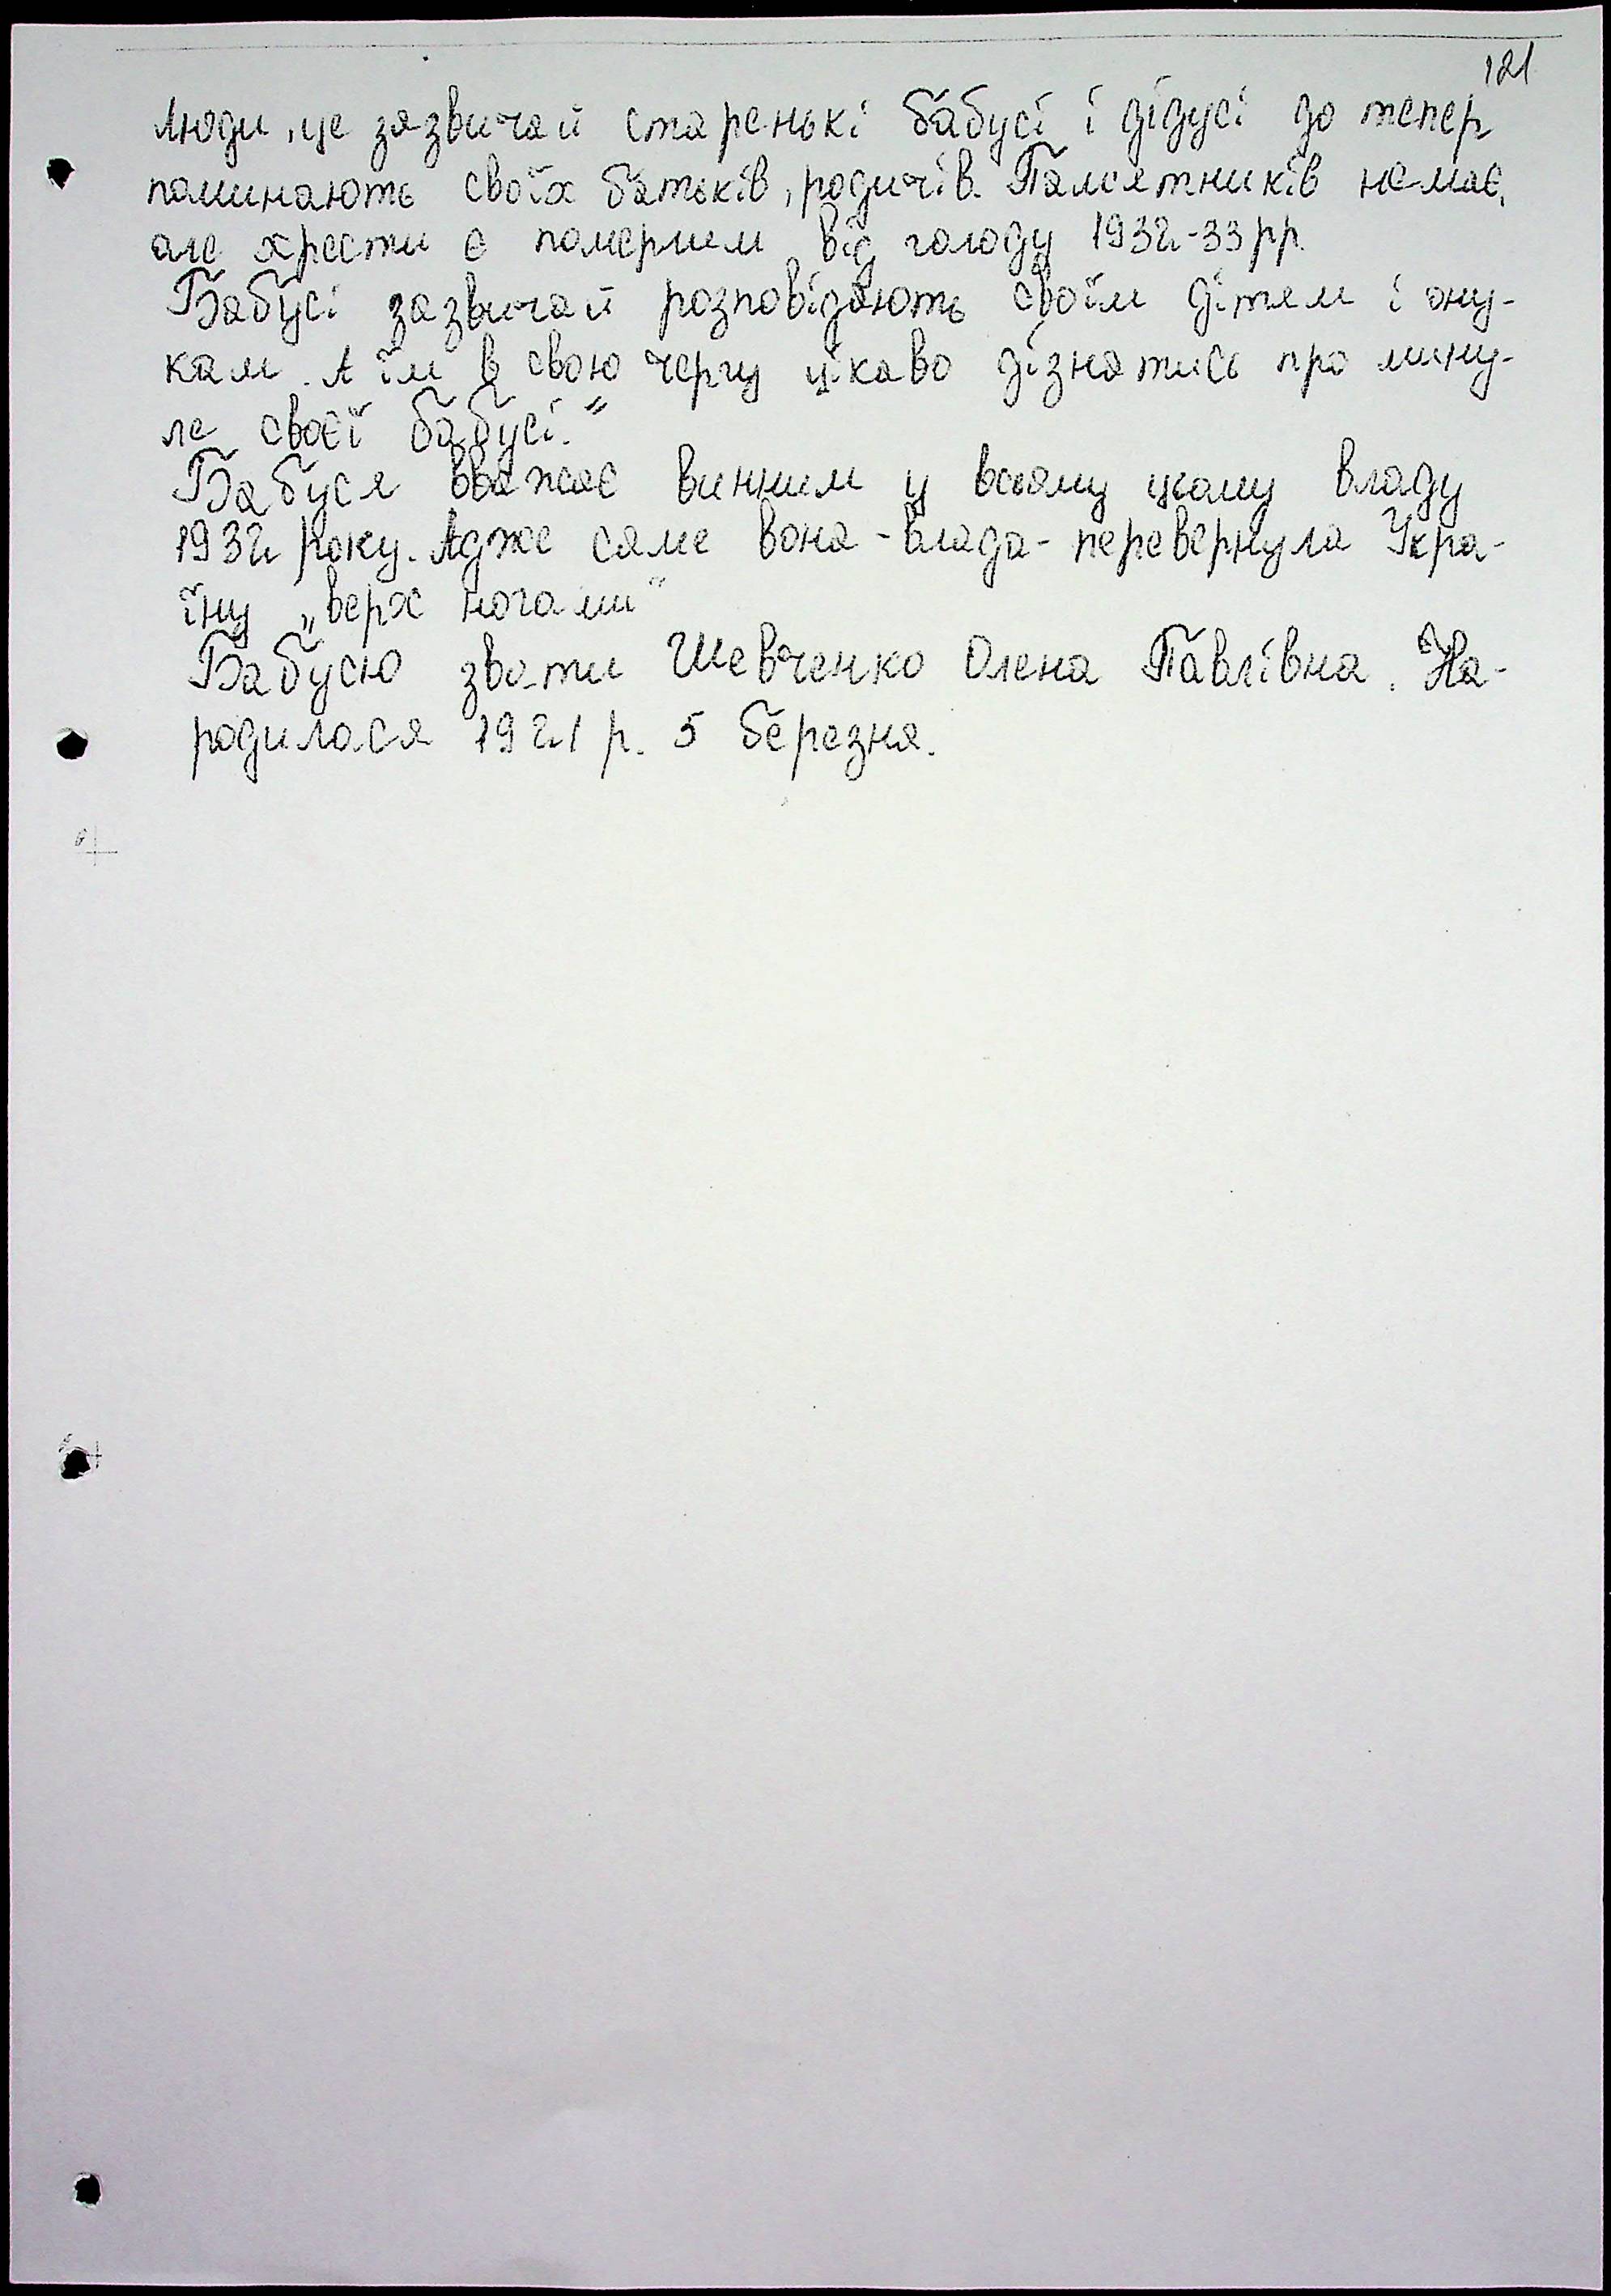 121
люди, це зязвичай старенькі бабусі і дідусі до тепер
поминають своїх батьків, родичів. Памсятників немає,
але хрести є померлим від голоду 1932-33 рр.
Бабусі зазвичай розповідають своїм дітям і ону-
кам. А їм в свою чергу цікаво дізнатись про мину-
ле своєї бабусі."
Бабуся вважає винним у всьому цьому владу
1932 року. Адже саме вона - влада - перевернула Укра-
їну „верх ногами"
Бабусю звати Шевченко Олена Павлівна. На-
родилася 1921 р. 5 березня.